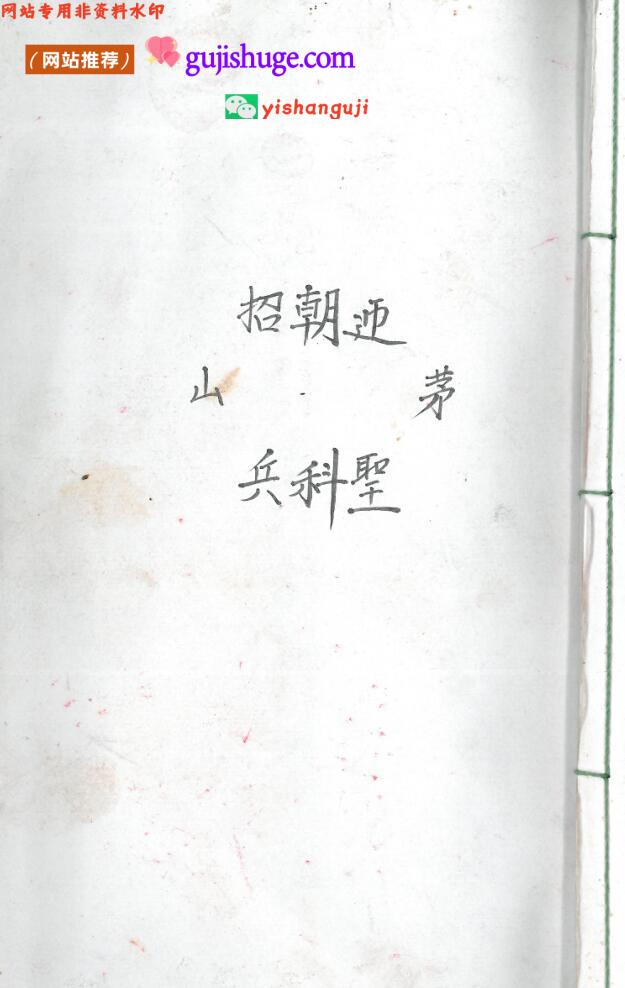 网站专用非资料水印
（网站推荐） gujishuge.com
yishanguji
招朝迎
山 · 茅
兵科聖